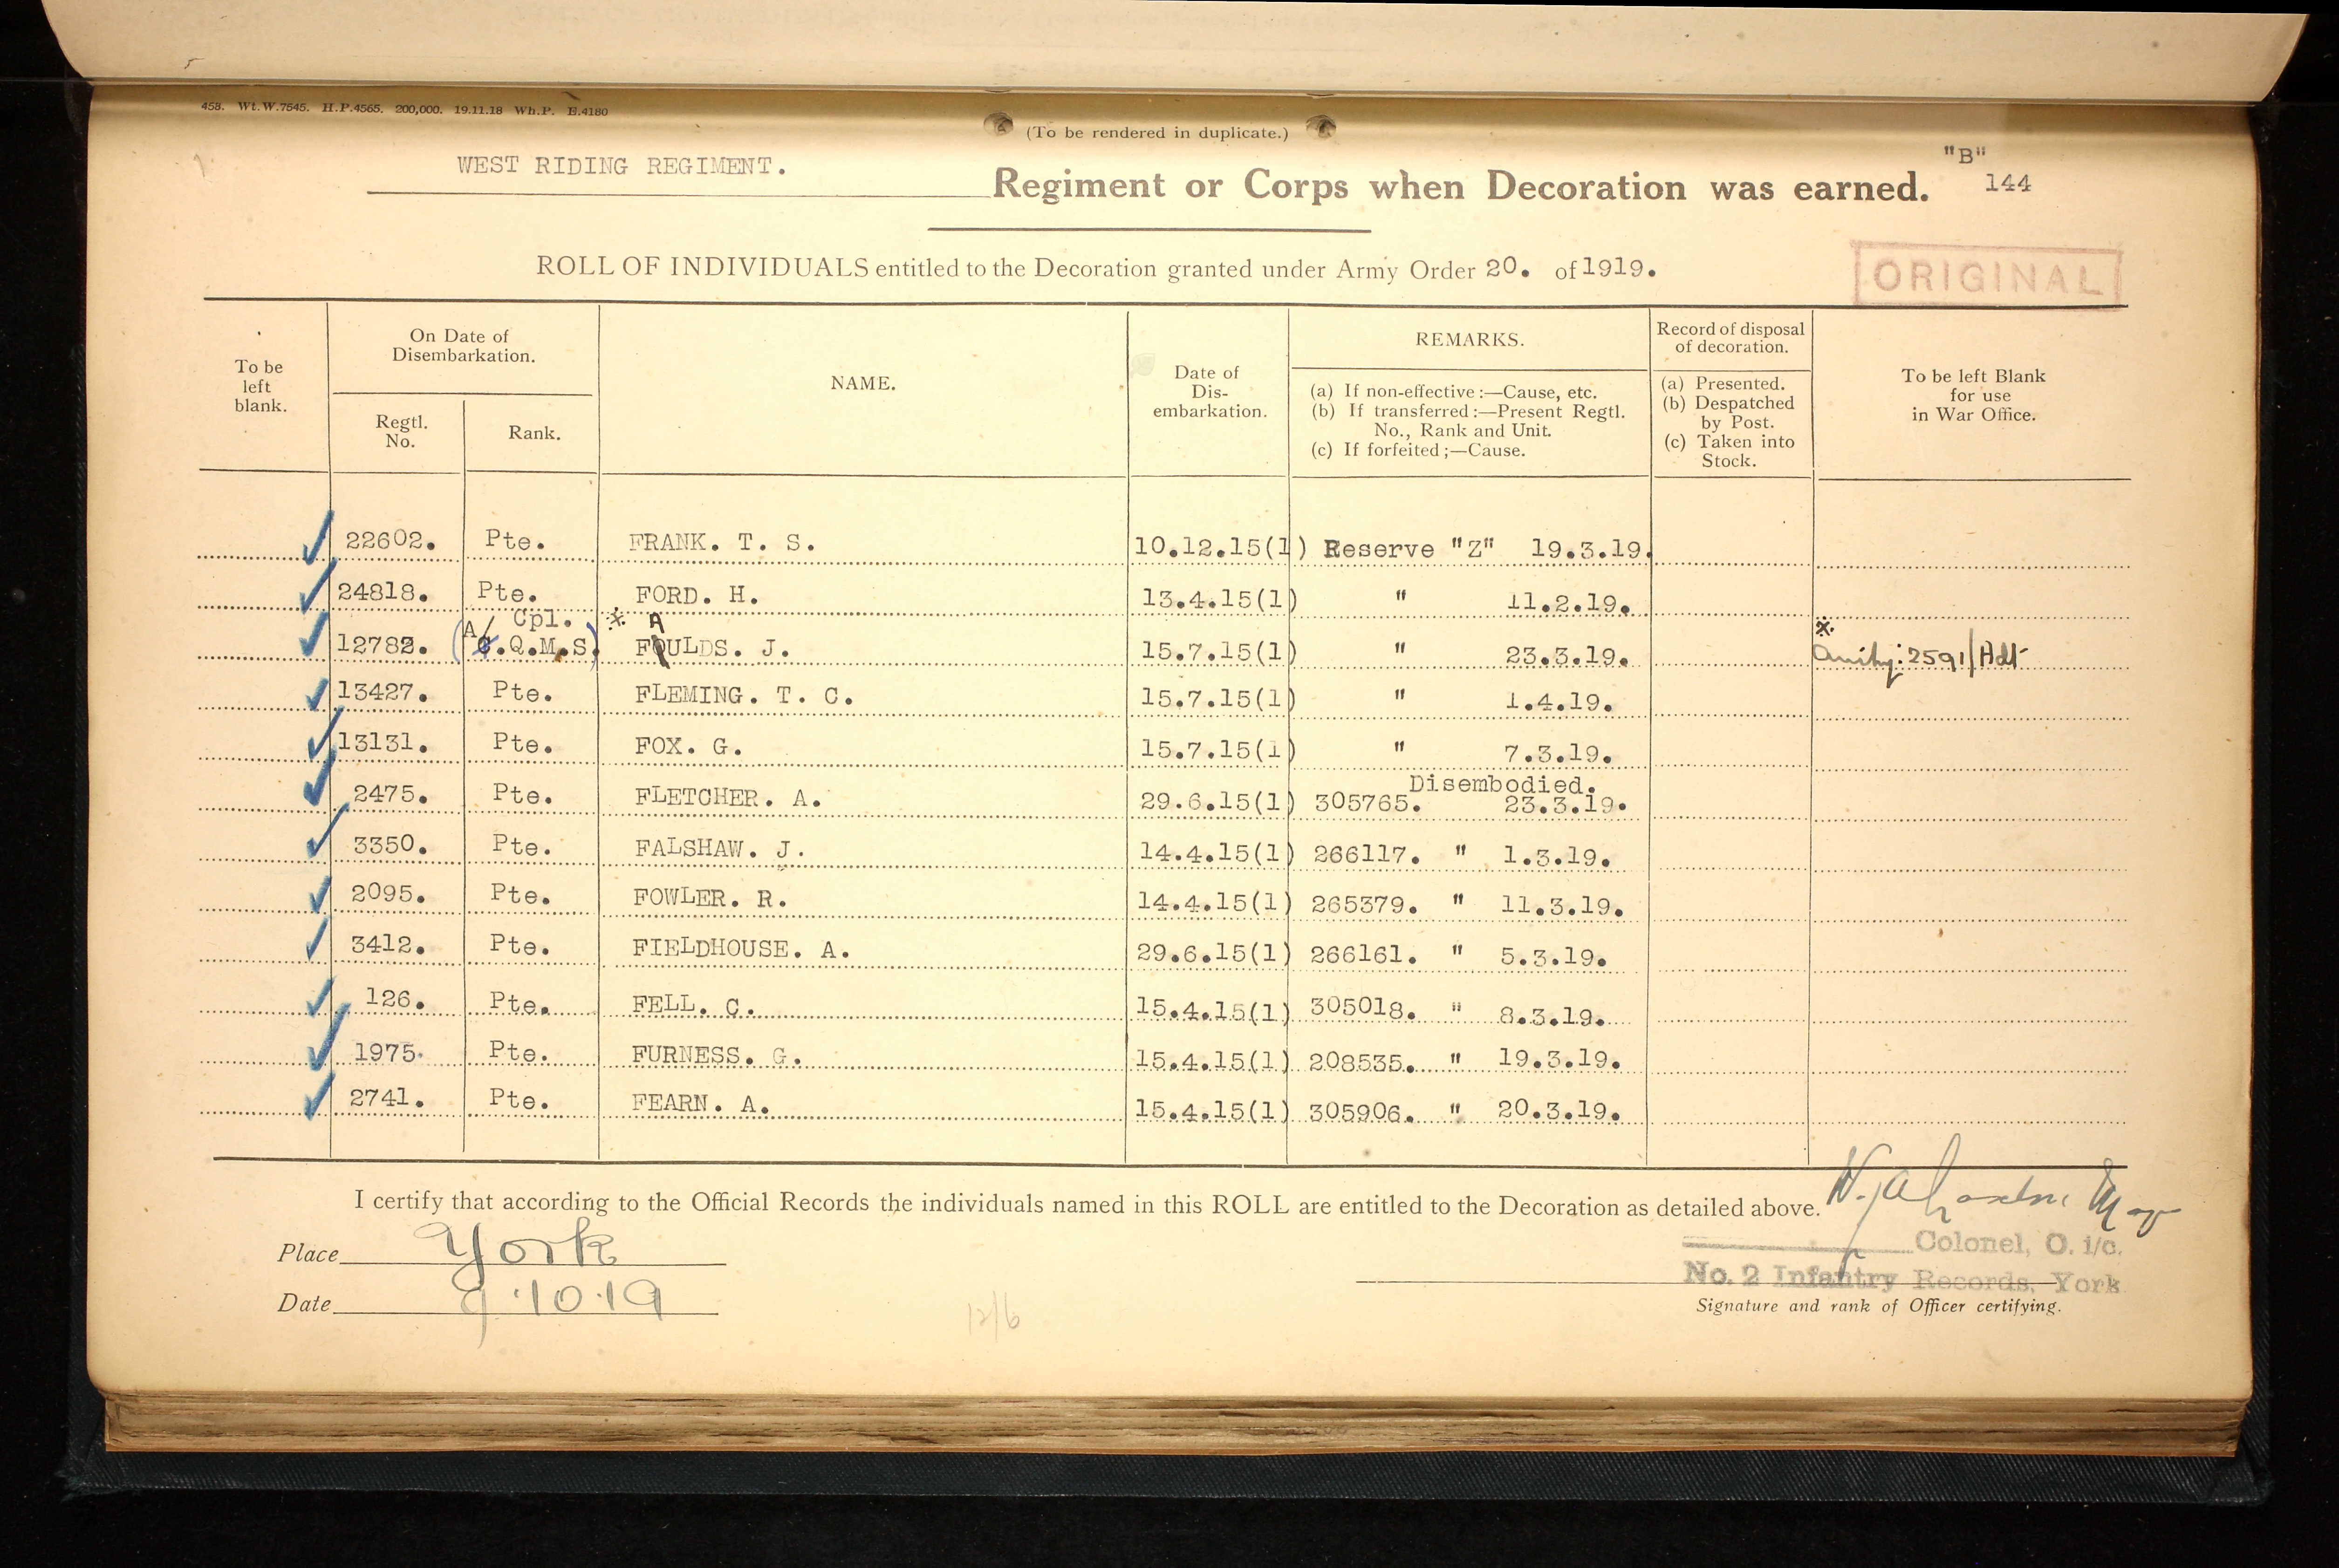 458. Wt.W.7545. H.P.4565. 200,000. 19.11.18 Wh.P. E.4180
(To be rendered in duplicate.)
WEST RIDING REGIMENT. Regiment or Corps when Decoration was earned. "B" 144
ROLL OF INDIVIDUALS entitled to the Decoration granted under Army Order 20. of 1919.
ORIGINAL
To be left blank.
On Date of Disembarkation.
Regtl. No.
Rank.
NAME.
Date of Dis-embarkation.
REMARKS.
(a) If non-effective:—Cause, etc.
(b) If transferred:—Present Regtl. No., Rank and Unit.
(c) If forfeited;—Cause.
Record of disposal of decoration.
(a) Presented.
(b) Despatched by Post.
(c) Taken into Stock.
To be left Blank for use in War Office.
22602. Pte. FRANK. T. S. 10.12.15(1) Reserve "Z" 19.3.19.
24818. Pte. FORD. H. 13.4.15(1) " 11.2.19.
Cpl. A
12782. (A/C.Q.M.S) FOULDS. J. 15.7.15(1) " 23.3.19. 2591/Adt
13427. Pte. FLEMING. T. C. 15.7.15(1) " 1.4.19.
13131. Pte. FOX. G. 15.7.15(1) " 7.3.19.
Disembodied.
2475. Pte. FLETCHER. A. 29.6.15(1) 305765. 23.3.19.
3350. Pte. FALSHAW. J. 14.4.15(1) 266117. " 1.3.19.
2095. Pte. FOWLER. R. 14.4.15(1) 265379. " 11.3.19.
3412. Pte. FIELDHOUSE. A. 29.6.15(1) 266161. " 5.3.19.
126. Pte. FELL. C. 15.4.15(1) 305018. " 8.3.19.
1975. Pte. FURNESS. G. 15.4.15(1) 208535. " 19.3.19.
2741. Pte. FEARN. A. 15.4.15(1) 305906. " 20.3.19.
I certify that according to the Official Records the individuals named in this ROLL are entitled to the Decoration as detailed above.
Place York
Colonel, O. i/c.
No. 2 Infantry Records, York
Date 9.10.19
12/6
Signature and rank of Officer certifying.